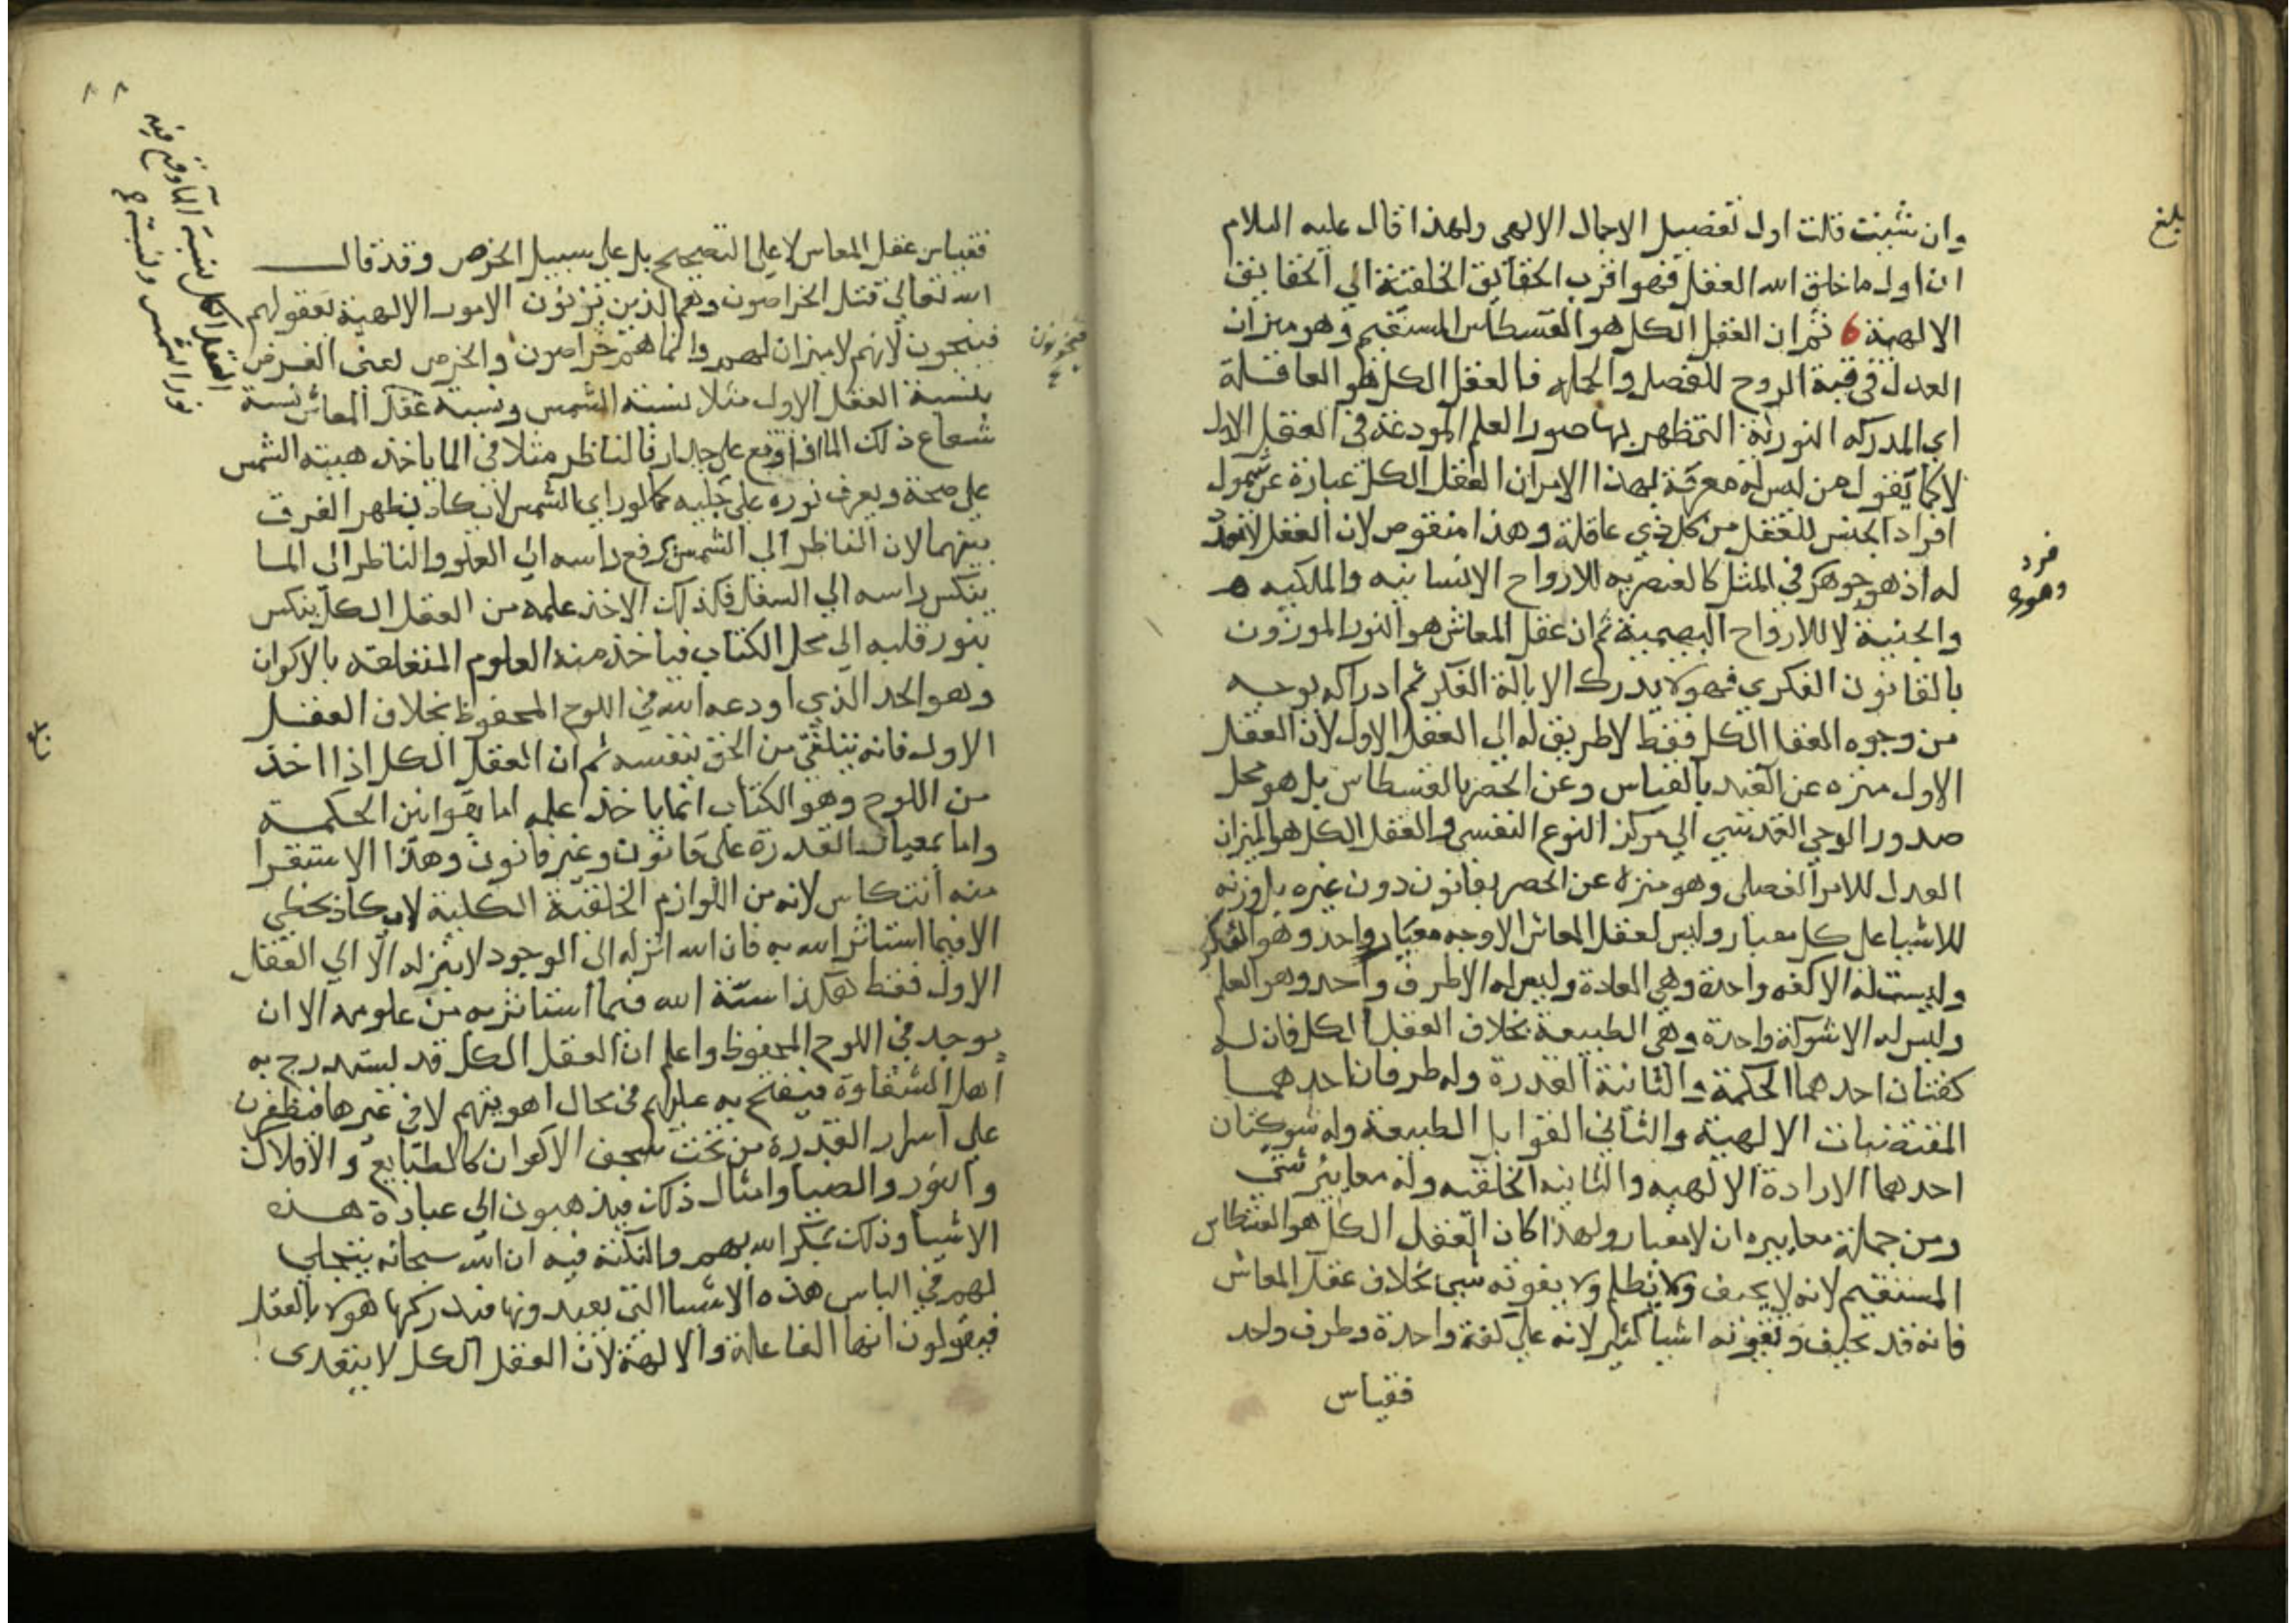 وان شئت قلت اول تفصيل الاجمال الالهى ولهذا قال عليه السلام
ان اول ما خلق الله العقل فهو اقرب الحقايق الخلقية الي الحقايق
الالهية ثم ان العقل الكل هو القسطاس المستقيم وهو ميزان
العدل في قبة الروح للفصل والجمله فالعقل الكل هو العاقلة
اي المدركه النورية التى ظهر بها صور العلم المودعة في العقل الاول
لا كما يقول من ليس له معرفة بهذا الامر ان العقل الكل عبارة عن شمول
افراد الجنس للعقل من كل ذي عاقلة وهذا منقوص لان العقل لا تعدد
له اذ هو جوهر في المثل كالعنصريه للارواح الانسانيه والملكيه
والجنية لا للارواح البهيمية ثم ان عقل المعاش هو النور الموزون
بالقانون الفكري فهو لا يدرك الا بالة الفكر ثم ادراكه بوجه
من وجوه العقل الكل فقط لا طريق له الي العقل الاول لان العقل
الاول منزه عن القيد بالقياس وعن الحصر بالقسطاس بل هو محل
صدور الوحي القدسي الي مركز النوع النفسي والعقل الكل هو الميزان
العدل للامر الفصلى وهو منزه عن الحصر بقانون دون غيره بل وزنه
للاشيا على كل معيار وليس لعقل المعاش الا وجه معيار واحد وهو الفكر
وليست له الا كفه واحدة وهي العادة وليس له الا طرف واحد وهو العلم
وليس له الا شوكة واحدة وهي الطبيعة بخلاف العقل الكل فان له
كفتان احدهما الحكمة والثانية القدرة وله طرفان احدهما
المقتضيات الالهية والثاني القوابل الطبيعة وله شوكتان
احدهما الارادة الالهيه والثانيه الخلقيه وله معايير شتى
ومن جملة معاييره ان لا معيار ولهذا كان العقل الكل هو القسطاس
المستقيم لانه لا يحيف ولا يظلم ولا يفوته شي بخلاف عقل المعاش
فانه قد يحيف وتفوته اشيا كثير لانه على كفة واحدة وطرف واحد
فقياس
بلغ
فرد
وهوره
فقياس عقل المعاش لا على التصحيح بل على سبيل الخرص وقد قال
الله تعالى قتل الخراصون وهم الذين يزنون الامور الالهية بعقولهم
فيبحون لانهم لا ميزان لهم وانما هم خراصون والخرص بمعنى الفرض
بنسبة العقل الاول مثلا نسبة الشمس ونسبة عقل المعاش نسبة
شعاع ذلك الما اذا وقع على جدار فالناظر مثلا في الما ياخذ هيئة الشمس
على صحة ويعرف نوره على جليه كما لو راى الشمس لا يكاد يظهر الفرق
بينهما الا ان الناظر الى الشمس يرفع راسه الي العلو والناظر الى الما
ينكس راسه الي السفل فكذلك الاخذ علمه من العقل الكل ينكس
بنور قلبه الي محل الكتاب فياخذ منه العلوم المتعلقه بالاكوان
وهو الحد الذي اودعه الله في اللوح المحفوظ بخلاف العقل
الاول فانه يتلقى من الحق بنفسه ثم ان العقل الكل اذا اخذ
من اللوح وهو الكتاب انما ياخذ علمه اما بقوانين الحكمة
واما بمعيار القدرة على قانون وغير قانون وهذا الاستقرا
منه انتكاس لانه من اللوازم الخلقية الكلية لا يكاد يخطي
الا فيما استاثر الله به فان الله انزله الى الوجود لا ينزله الا الي العقل
الاول فقط هكذا سنة الله فيما استاثر به من علومه الا ان
يوجد في اللوح المحفوظ واعلم ان العقل الكل قد يستدرج به
اهل الشقاوة فيفتح به عليهم في مجال اهويتهم لا في غيرها فيظفرن
على اسرار القدرة من تحت سجف الاكوان كالطبايع والافلاك
والنور والضيا وامثال ذلك فيذهبون الى عبادة هذه
الاشيا وذلك بمكر الله بهم والنكتة فيه ان الله سبحانه يتجلى
لهم في الباس هذه الاشيا التى يعبدونها فيدركها هولا بالعقل
فيقولون انها الفاعلة والالهة لان العقل الكل لا يتعدى
العقل الكل نسبة الما وقع فيه
نور الشمس ونسبة
٨٨